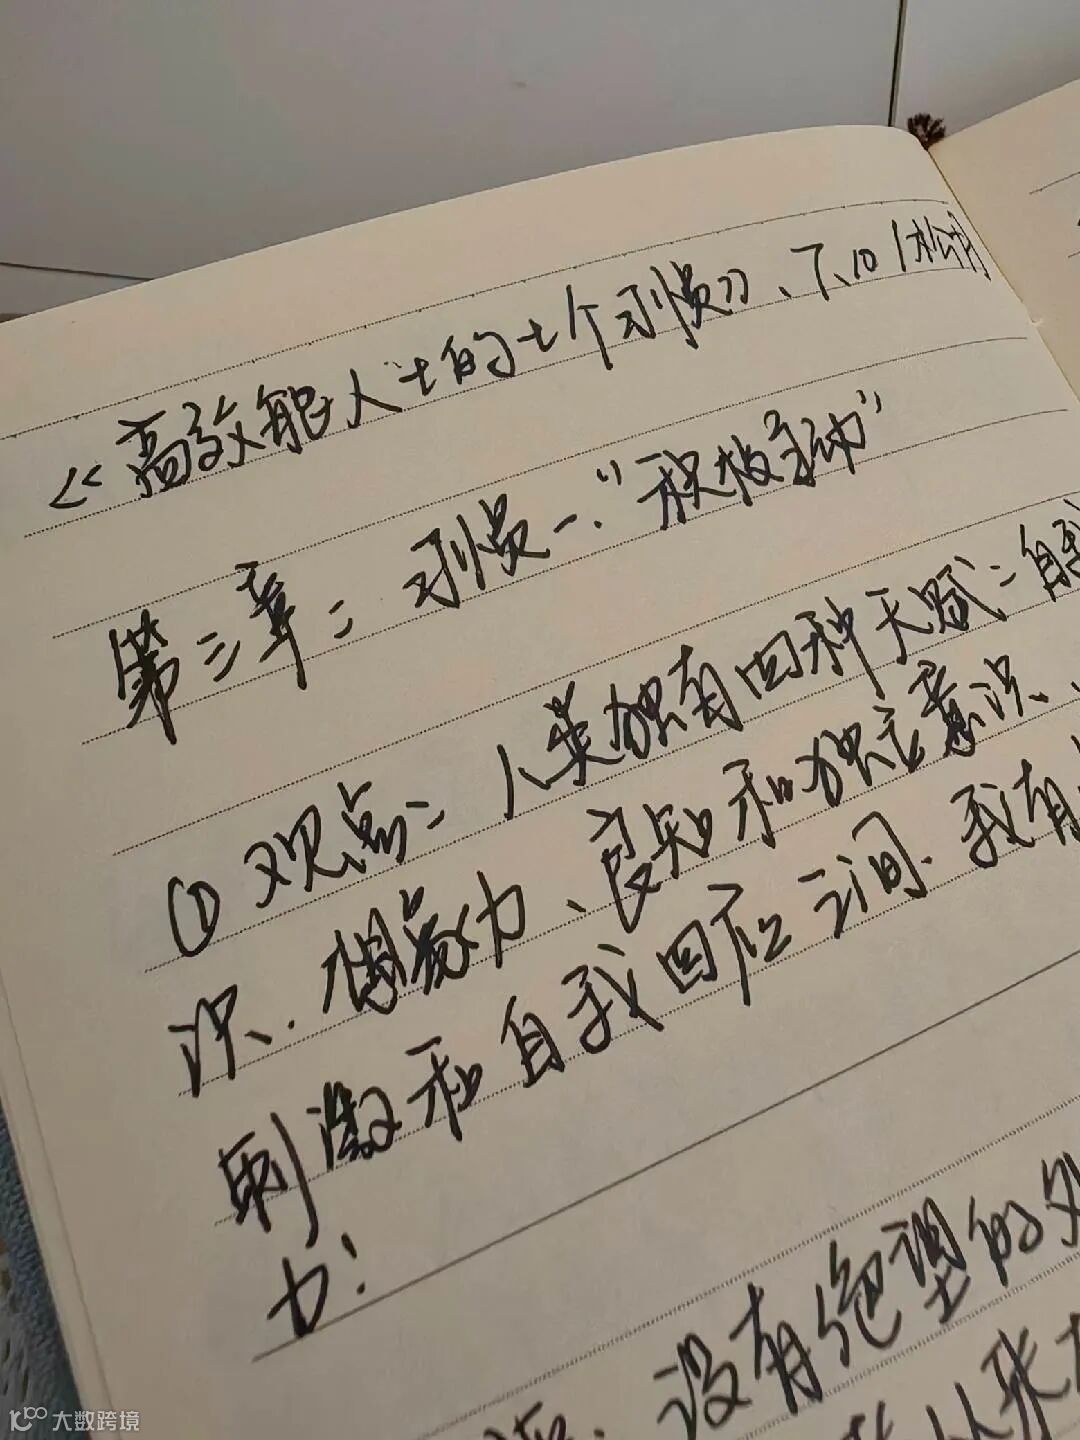 《高效能人士的七个习惯》、
第三章：习惯一：“积极主动”
①观点：人类独有四种天赋：自我
识、想象力、良知和独立意识、
刺激和自我回应之间、我有
力！
没有绝望的
大数跨境